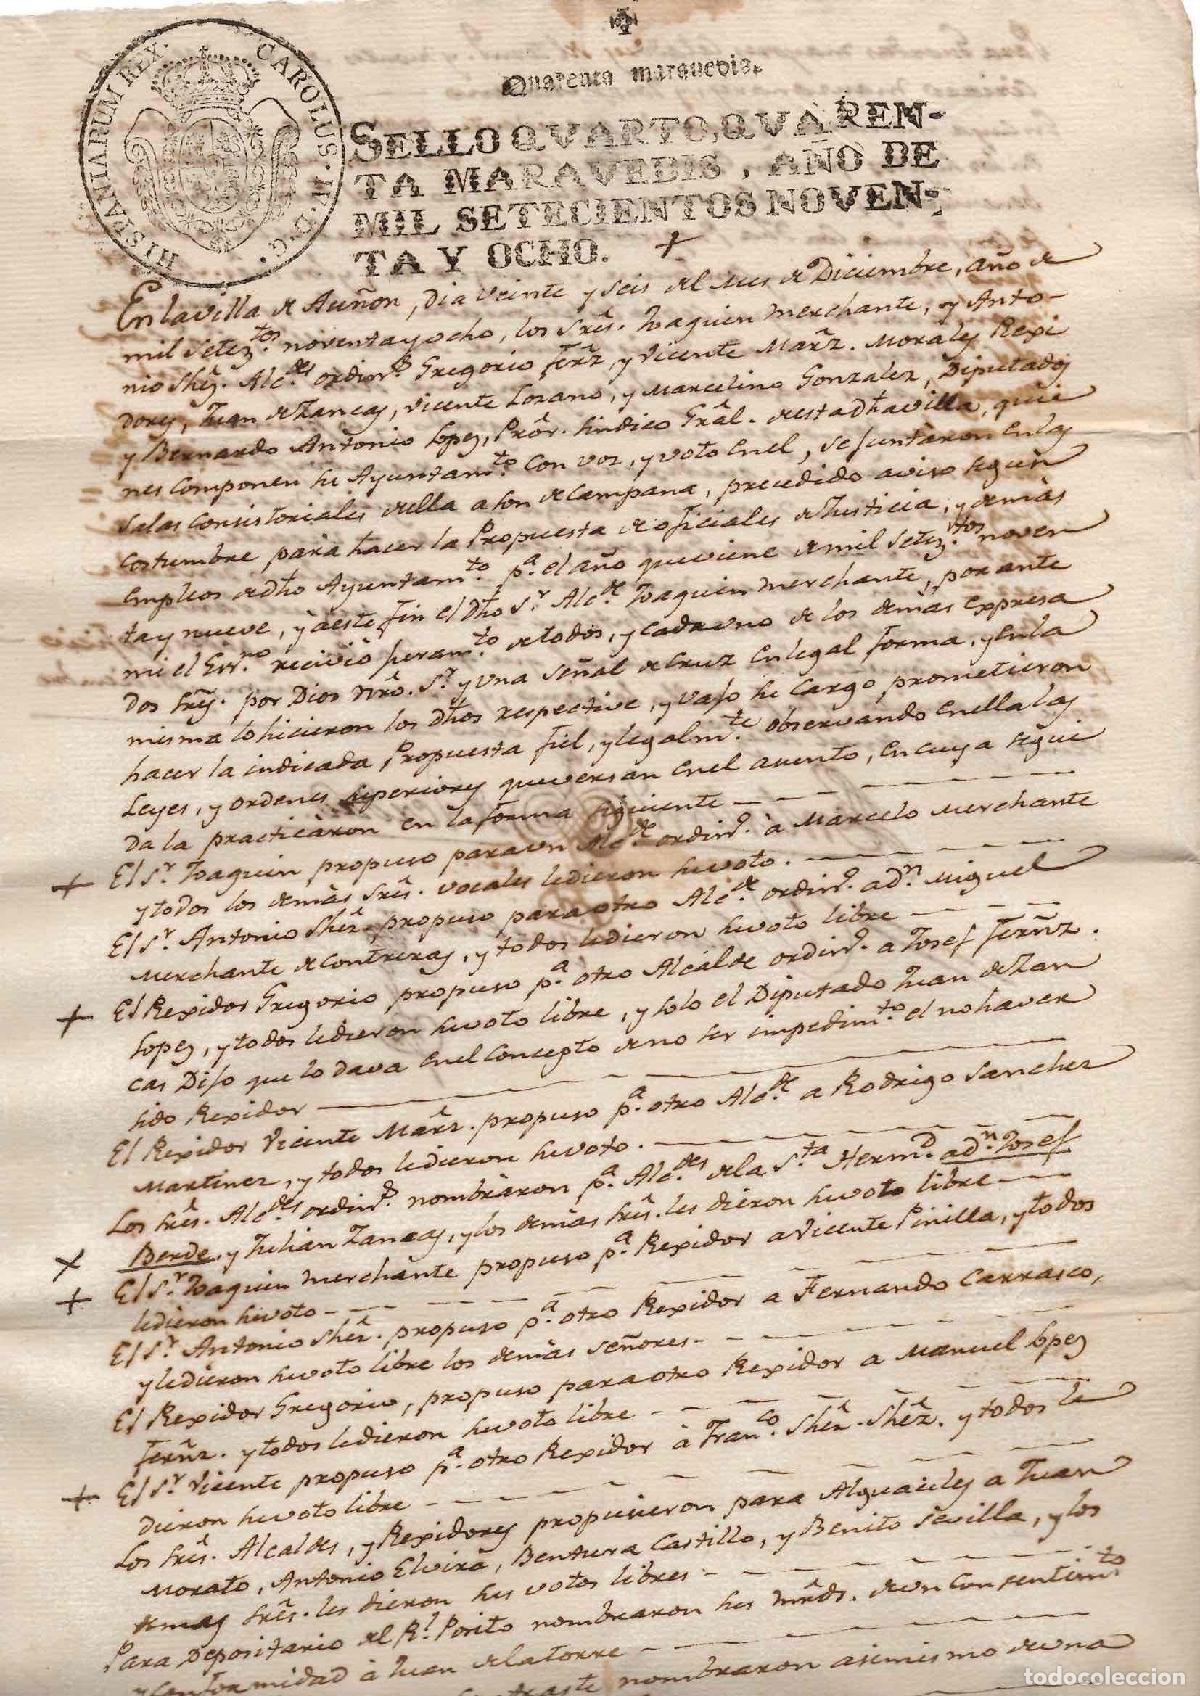 HISPANIARUM REX. CAROLUS. IV. D. G.
Quarenta maravedis.
SELLO QVARTO, QVAREN-
TA MARAVEDIS, AÑO DE
MIL SETECIENTOS NOVEN-
TA Y OCHO.
En la villa de Auñon, dia veinte y seis del mes de Diciembre, año de
mil setez.tos noventa y ocho, los Sres. Joaquin Merchante, y Anto-
nio Shez. Alc.des ordin.s Gregorio Ferz, y Vicente Marz. Morales Rexi
dores, Juan de Zancas, Vicente Lozano, y Marcelino Gonzalez, Diputados
y Bernardo Antonio Lopez, Pror. Sindico Gral. de esta dha villa, quie
nes componen su Ayuntam.to con voz, y voto en el, se juntaron en las
salas consistoriales della a son de campana, precedido aviso segun
costumbre para hacer la Propuesta de oficiales de Justicia, y demàs
empleos de dho Ayuntam.to p.a el año que viene de mil setez.tos noven
ta y nueve, y à este fin el dho S.r Alc.de Joaquin Merchante, por ante
mi el Ess.no recivio juram.to de todos, y cada uno de los demàs expresa
dos Sres. por Dios Nro. S.r y una señal de cruz en legal forma, y en la
misma lo hicieron los dhos respective, y vajo su cargo prometieron
hacer la indicada Propuesta fiel, y legalm.te observando en ella las
Leyes, y ordenes superiores que versan en el asunto, en cuya segui
da la practicàron en la forma siguiente
+ El S.r Joaquin propuso para un Alc.de ordin.o à Marcelo Merchante
y todos los demàs Sres. vocales le dieron su voto.
El S.r Antonio Shez. propuso para otro Alc.de ordin.o a d.n Miguel
Merchante de Contreras, y todos le dieron su voto libre
+ El Rexidor Gregorio propuso p.a otro Alcalde ordin.o a Josef Fernz.
Lopez, y todos le dieron su voto libre, y solo el Diputado Juan de Zan
cas Dijo que lo dava en el concepto de no ser impedim.to el no haver
sido Rexidor
El Rexidor Vicente Marz. propuso p.a otro Alc.de a Rodrigo Sanchez
Martinez, y todos le dieron su voto.
Los Sres. Alc.des ordin.s nombràron p.a Alc.des de la S.ta Herm.d a d.n Josef
x Berde, y Julian Zancas, y los demàs Sres. les dieron su voto libre
+ El S.r Joaquin Merchànte propuso p.a Rexidor a Vicente Pinilla, y todos
le dieron su voto
El S.r Antonio Shez. propuso p.a otro Rexidor a Fernando Carrasco,
y le dieron su voto libre los demàs señores
El Rexidor Gregorio, propuso para otro Rexidor a Manuel Lopez
Fernz. y todos le dieron su voto libre
+ El S.r Vicente propuso p.a otro Rexidor à Fran.co Shez. Shez. y todos le
dieron su voto libre
Los Sres. Alcaldes, y Rexidores propusieron para Alguaciles a Juan
Morato, Antonio Elvira, Bentura Castillo, y Benito Sevilla, y los
demas Sres. les dieron sus votos libres
Para Depositario del R.l Posito nombraron sus mrds. de un consentim.to
y conformidad à Juan de la Torre
nombraron asimismo de una
todocoleccion